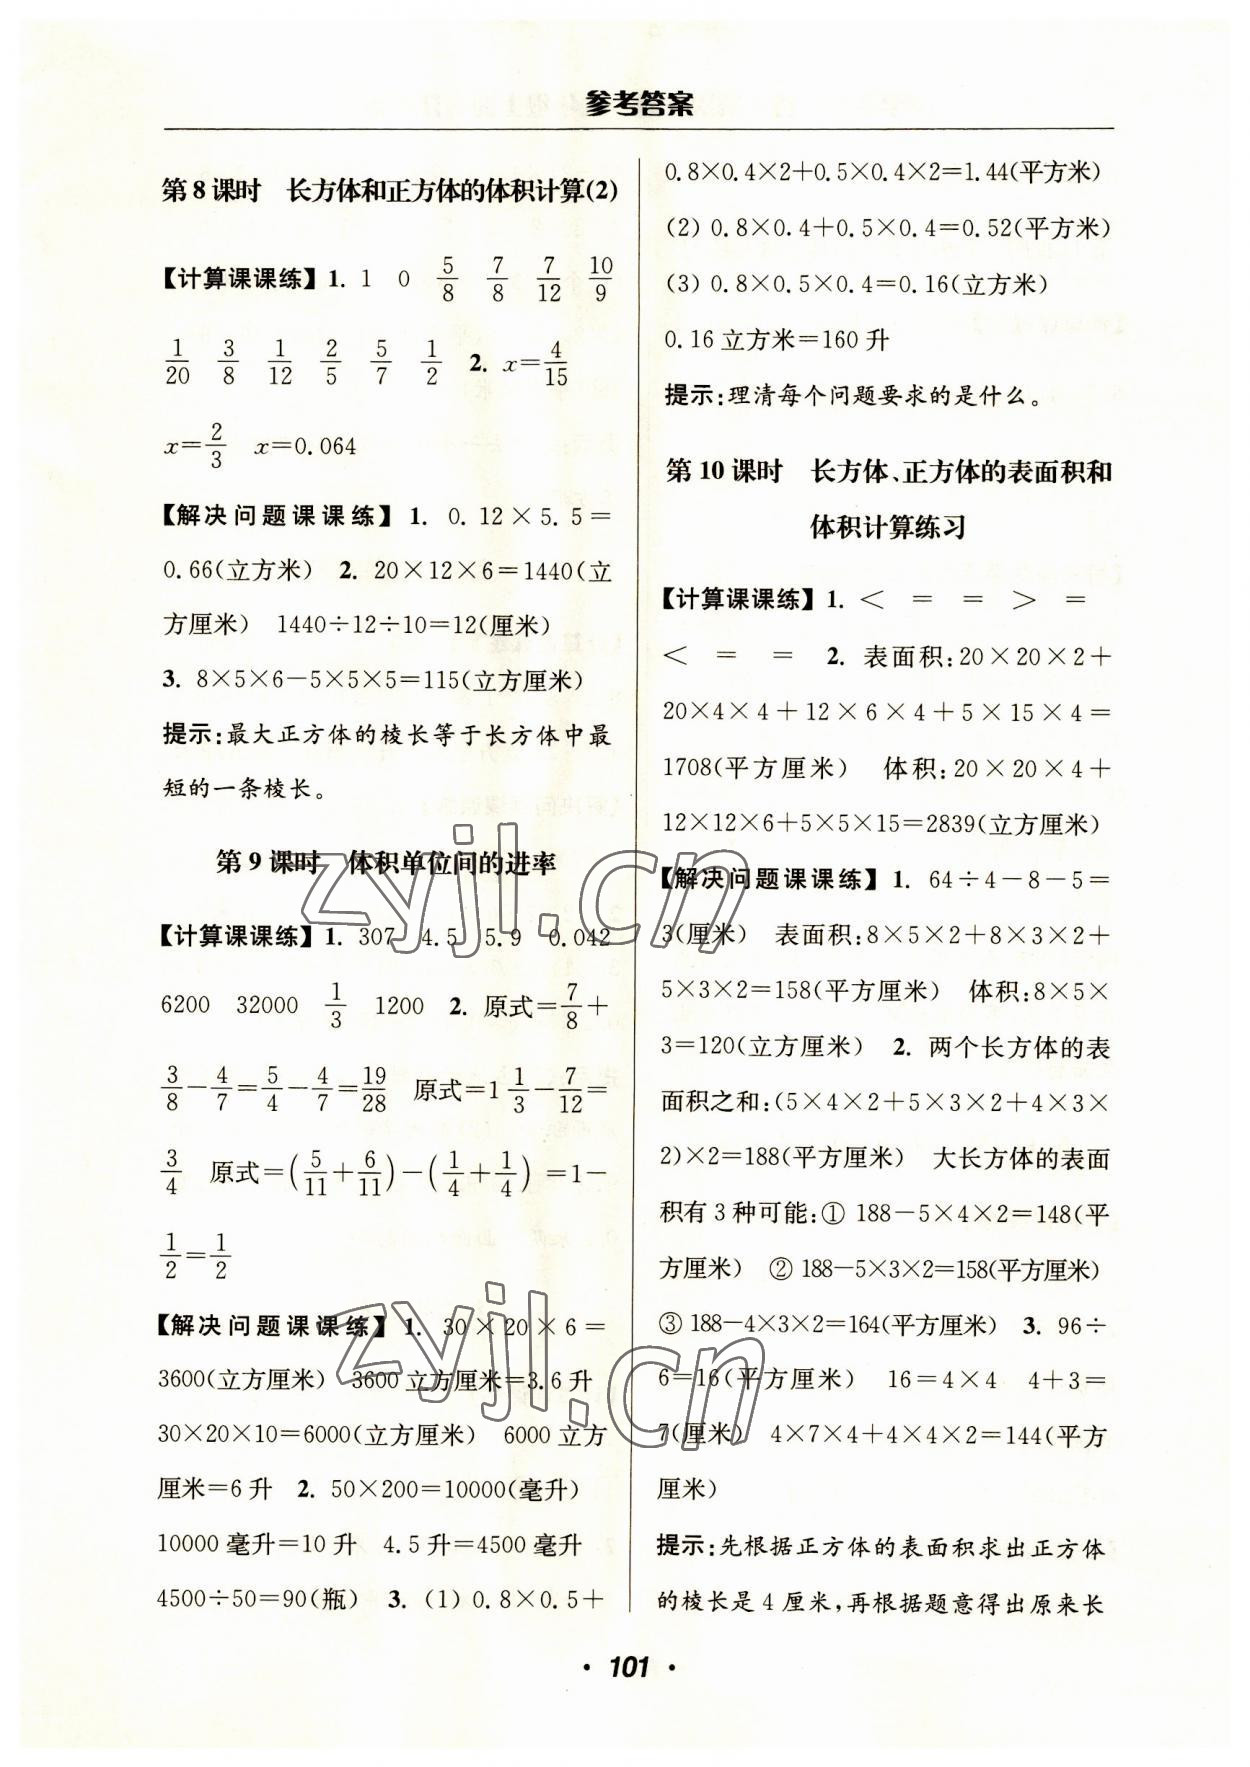 参考答案
第8课时 长方体和正方体的体积计算(2)
【计算课课练】1. 1 0 5/8 7/8 7/12 10/9
1/20 3/8 1/12 2/5 5/7 1/2 2. x=4/15
x=2/3 x=0.064
【解决问题课课练】1. 0.12×5.5=
0.66(立方米) 2. 20×12×6=1440(立
方厘米) 1440÷12÷10=12(厘米)
3. 8×5×6-5×5×5=115(立方厘米)
提示:最大正方体的棱长等于长方体中最
短的一条棱长。
第9课时 体积单位间的进率
【计算课课练】1. 307 4.5 5.9 0.042
6200 32000 1/3 1200 2. 原式=7/8+
3/8-4/7=5/4-4/7=19/28 原式=1 1/3-7/12=
3/4 原式=(5/11+6/11)-(1/4+1/4)=1-
1/2=1/2
【解决问题课课练】1. 30×20×6=
3600(立方厘米) 3600立方厘米=3.6升
30×20×10=6000(立方厘米) 6000立方
厘米=6升 2. 50×200=10000(毫升)
10000毫升=10升 4.5升=4500毫升
4500÷50=90(瓶) 3. (1) 0.8×0.5+
0.8×0.4×2+0.5×0.4×2=1.44(平方米)
(2) 0.8×0.4+0.5×0.4=0.52(平方米)
(3) 0.8×0.5×0.4=0.16(立方米)
0.16立方米=160升
提示:理清每个问题要求的是什么。
第10课时 长方体、正方体的表面积和
体积计算练习
【计算课课练】1. < = = > =
< = = 2. 表面积:20×20×2+
20×4×4+12×6×4+5×15×4=
1708(平方厘米) 体积:20×20×4+
12×12×6+5×5×15=2839(立方厘米)
【解决问题课课练】1. 64÷4-8-5=
3(厘米) 表面积:8×5×2+8×3×2+
5×3×2=158(平方厘米) 体积:8×5×
3=120(立方厘米) 2. 两个长方体的表
面积之和:(5×4×2+5×3×2+4×3×
2)×2=188(平方厘米) 大长方体的表面
积有3种可能:① 188-5×4×2=148(平
方厘米) ② 188-5×3×2=158(平方厘米)
③ 188-4×3×2=164(平方厘米) 3. 96÷
6=16(平方厘米) 16=4×4 4+3=
7(厘米) 4×7×4+4×4×2=144(平方
厘米)
提示:先根据正方体的表面积求出正方体
的棱长是4厘米,再根据题意得出原来长
· 101 ·
zyjl.cn
zyjl.cn